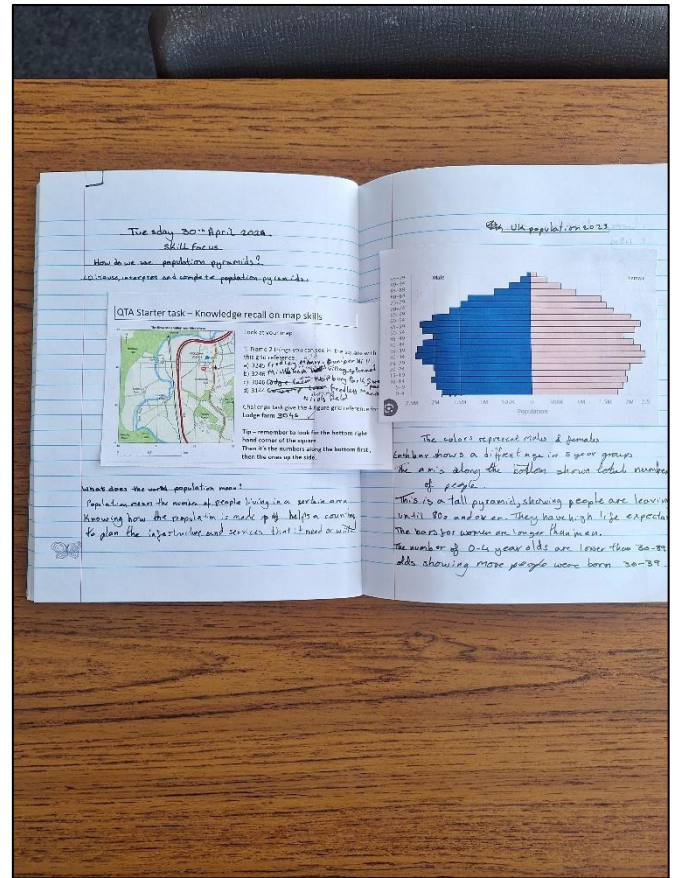 Tuesday 30th April 2024
Skill focus
How do we use population pyramids?
LO: use, interpret and complete population pyramids.
QTA Starter task – Knowledge recall on map skills
Look at your map
1. Name 2 things you can see in the square with
this 4 fig reference
a) 3245 Fredley Manor, Juniper Hill
b) 3246
c) 3046
d) 3144 Fredley Manor
Challenge task give the 4 figure grid reference for
Lodge farm 3045
Tip – remember to look for the bottom right
hand corner of the square
Then it's the numbers along the bottom first,
then the ones up the side.
What does the world population mean?
Population means the number of people living in a sertain area
Knowing how the population is made up of helps a country
to plan the infastructure and services that it need or
UK population 2023
Male
Female
Population
The colors represent males & females
Each bar shows a diffrent age in 5 year groups
The axis along the bottom shows total number
of people.
This is a tall pyramid, showing people are leaving
until 80s and over. They have high life expecta
The bars for women are longer than men.
The number of 0-4 year olds are lower than 30-39
olds showing more people were born 30-39.